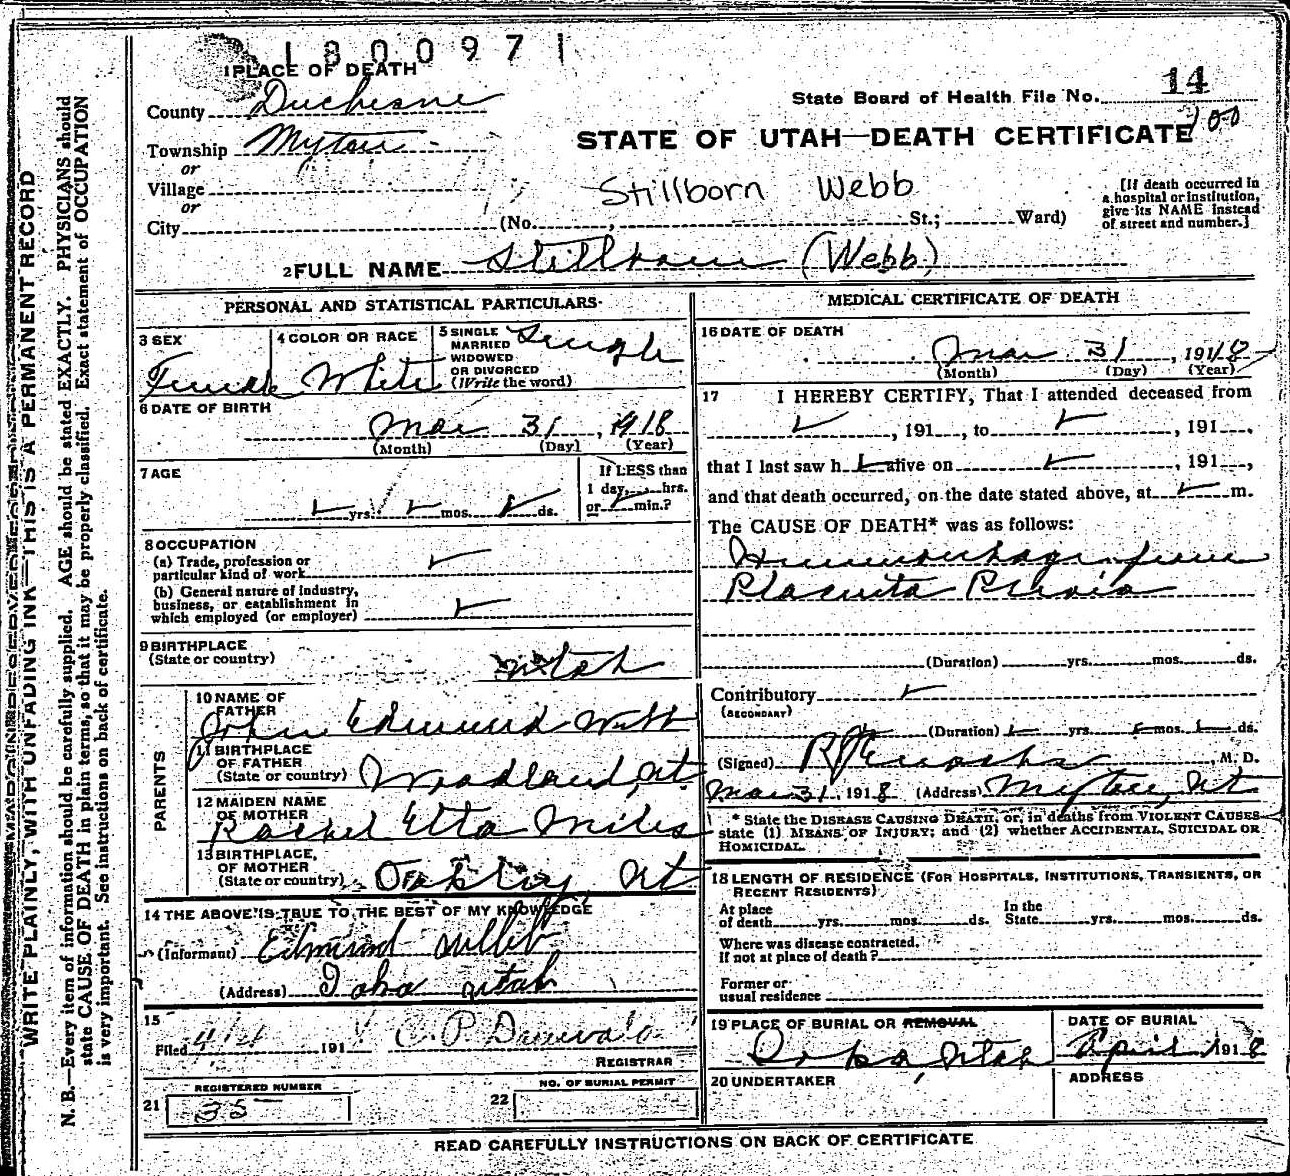 1800971
1 PLACE OF DEATH
County Duchesne
State Board of Health File No. 14
100
Township Myton
STATE OF UTAH—DEATH CERTIFICATE
or
Village
Stillborn Webb
or
City (No. , St.; Ward)
[If death occurred in a hospital or institution, give its NAME instead of street and number.]
2 FULL NAME Stillborn (Webb)
WRITE PLAINLY, WITH UNFADING INK—THIS IS A PERMANENT RECORD
N. B.—Every item of information should be carefully supplied. AGE should be stated EXACTLY. PHYSICIANS should
state CAUSE OF DEATH in plain terms, so that it may be properly classified. Exact statement of OCCUPATION
is very important. See instructions on back of certificate.
PERSONAL AND STATISTICAL PARTICULARS
3 SEX
Female
4 COLOR OR RACE
White
5 SINGLE
MARRIED
WIDOWED
OR DIVORCED
(Write the word)
Single
6 DATE OF BIRTH
Mar 31, 1918
(Month) (Day) (Year)
7 AGE
yrs. mos. ds.
If LESS than
1 day, hrs.
or min.?
8 OCCUPATION
(a) Trade, profession or
particular kind of work
(b) General nature of industry,
business, or establishment in
which employed (or employer)
9 BIRTHPLACE
(State or country)
Utah
PARENTS
10 NAME OF
FATHER
John Edmund Webb
11 BIRTHPLACE
OF FATHER
(State or country) Woodland, Ut.
12 MAIDEN NAME
OF MOTHER
Rachel Etta Miles
13 BIRTHPLACE,
OF MOTHER
(State or country) Oakley, Ut
14 THE ABOVE IS TRUE TO THE BEST OF MY KNOWLEDGE
(Informant) Edmund Webb
(Address) Ioka Utah
15
Filed 4/4 191 C. P.
REGISTRAR
REGISTERED NUMBER
21 35
NO. OF BURIAL PERMIT
22
MEDICAL CERTIFICATE OF DEATH
16 DATE OF DEATH
Mar 31, 1918
(Month) (Day) (Year)
17 I HEREBY CERTIFY, That I attended deceased from
, 191 , to , 191 ,
that I last saw h alive on , 191 ,
and that death occurred, on the date stated above, at m.
The CAUSE OF DEATH* was as follows:
Hemmorhage from
Placenta Previa
(Duration) yrs. mos. ds.
Contributory
(SECONDARY)
(Duration) yrs. mos. ds.
(Signed) , M. D.
Mar 31, 1918 (Address) Myton, Ut
* State the DISEASE CAUSING DEATH, or, in deaths from VIOLENT CAUSES
state (1) MEANS OF INJURY; and (2) whether ACCIDENTAL, SUICIDAL OR
HOMICIDAL.
18 LENGTH OF RESIDENCE (FOR HOSPITALS, INSTITUTIONS, TRANSIENTS, OR
RECENT RESIDENTS)
At place
of death yrs. mos. ds.
In the
State yrs. mos. ds.
Where was disease contracted,
If not at place of death?
Former or
usual residence
19 PLACE OF BURIAL OR REMOVAL
Ioka, Utah
DATE OF BURIAL
April 1 1918
20 UNDERTAKER
ADDRESS
READ CAREFULLY INSTRUCTIONS ON BACK OF CERTIFICATE